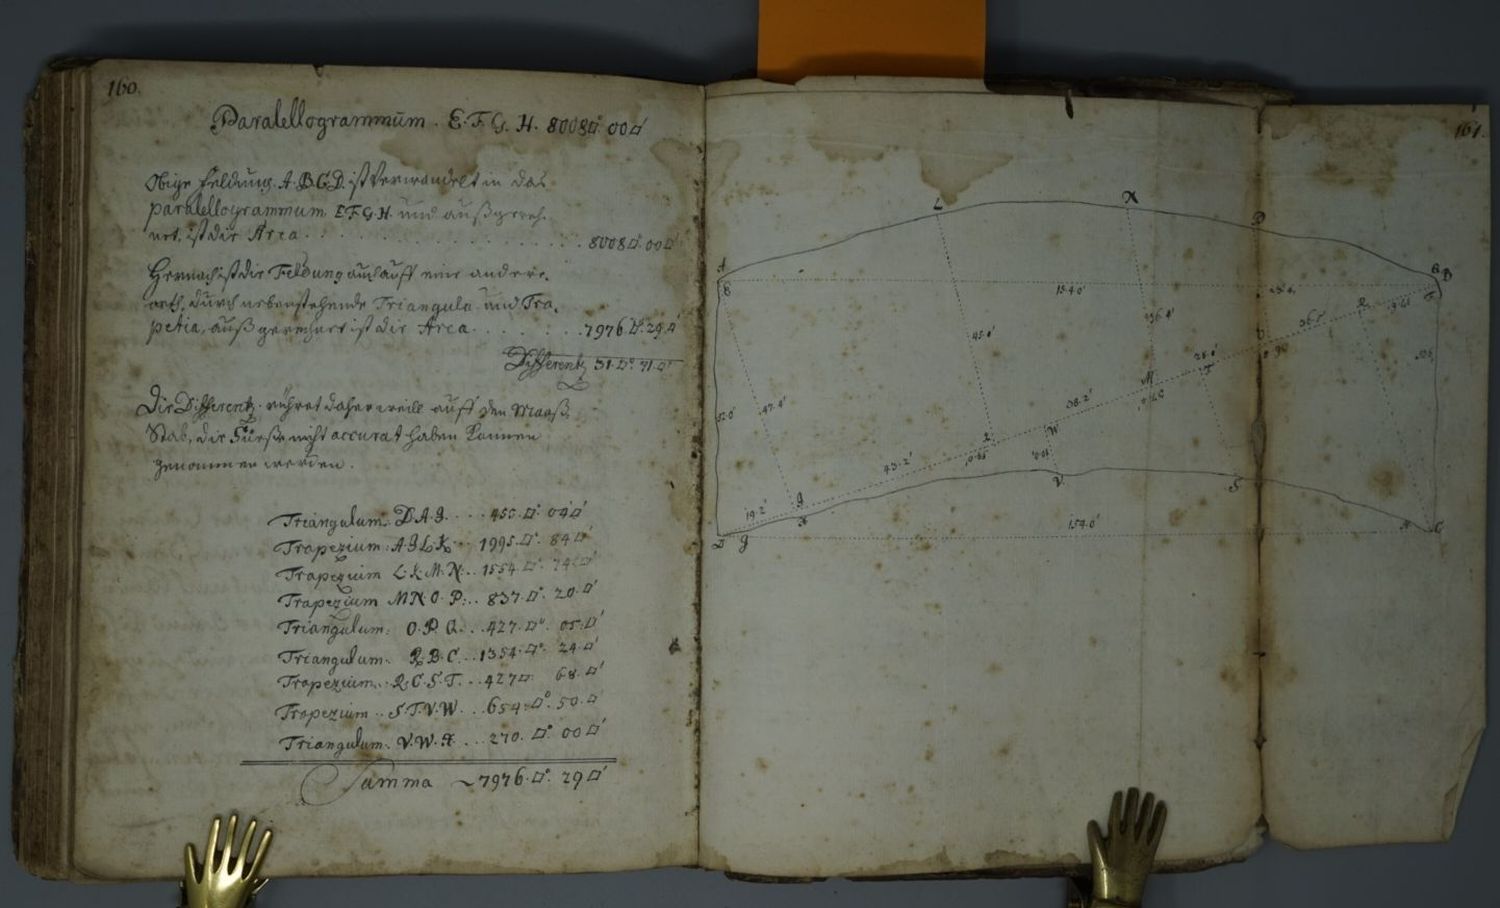 160.
Paralellogrammum. E.F.G.H. 8008□° 00□'
Obige Feldung A.B.C.D. ist Verwandelt in das
paralellogrammum E.F.G.H. und außgerech-
net, ist die Area . . . . . . . . . . 8008□° 00□'
Hernach ist die Feldung auch auff eine andere
arth, durch nebenstehende Triangula und Tra-
petia, außgerechnet ist die Area . . . . . . 7976.□° 29.□'
Differentz 31.□° 71.□'
Die Differentz rühret daher weill auff den Maaß-
Stab, die Füeße nicht accurat haben können
genommen werden.
Triangulum. D.A.J. . . . 455.□° 04□'
Trapezium. A.J.L.K. . . 1995.□° 84□'
Trapezium L.K.M.N. . . 1554.□° 74□'
Trapezium M.N.O.P. . . 837.□° 20.□'
Triangulum. O.P.Q. . . 427.□° 05.□'
Triangulum. R.B.C. . . 1354.□° 24.□'
Trapezium. R.C.S.T. . . 427□ 68.□'
Trapezium. S.T.V.W. . . 654.□° 50.□'
Triangulum. V.W.X. . . 270.□° 00□'
Summa ~ 7976.□° 29□'
161.
L N P
A B
E F
154.0'
45.0' 36.4'
52.0' 47.4'
36.5'
M
38.2'
W
43.2'
V S
19.2' J
X
D G
154.0'
H C